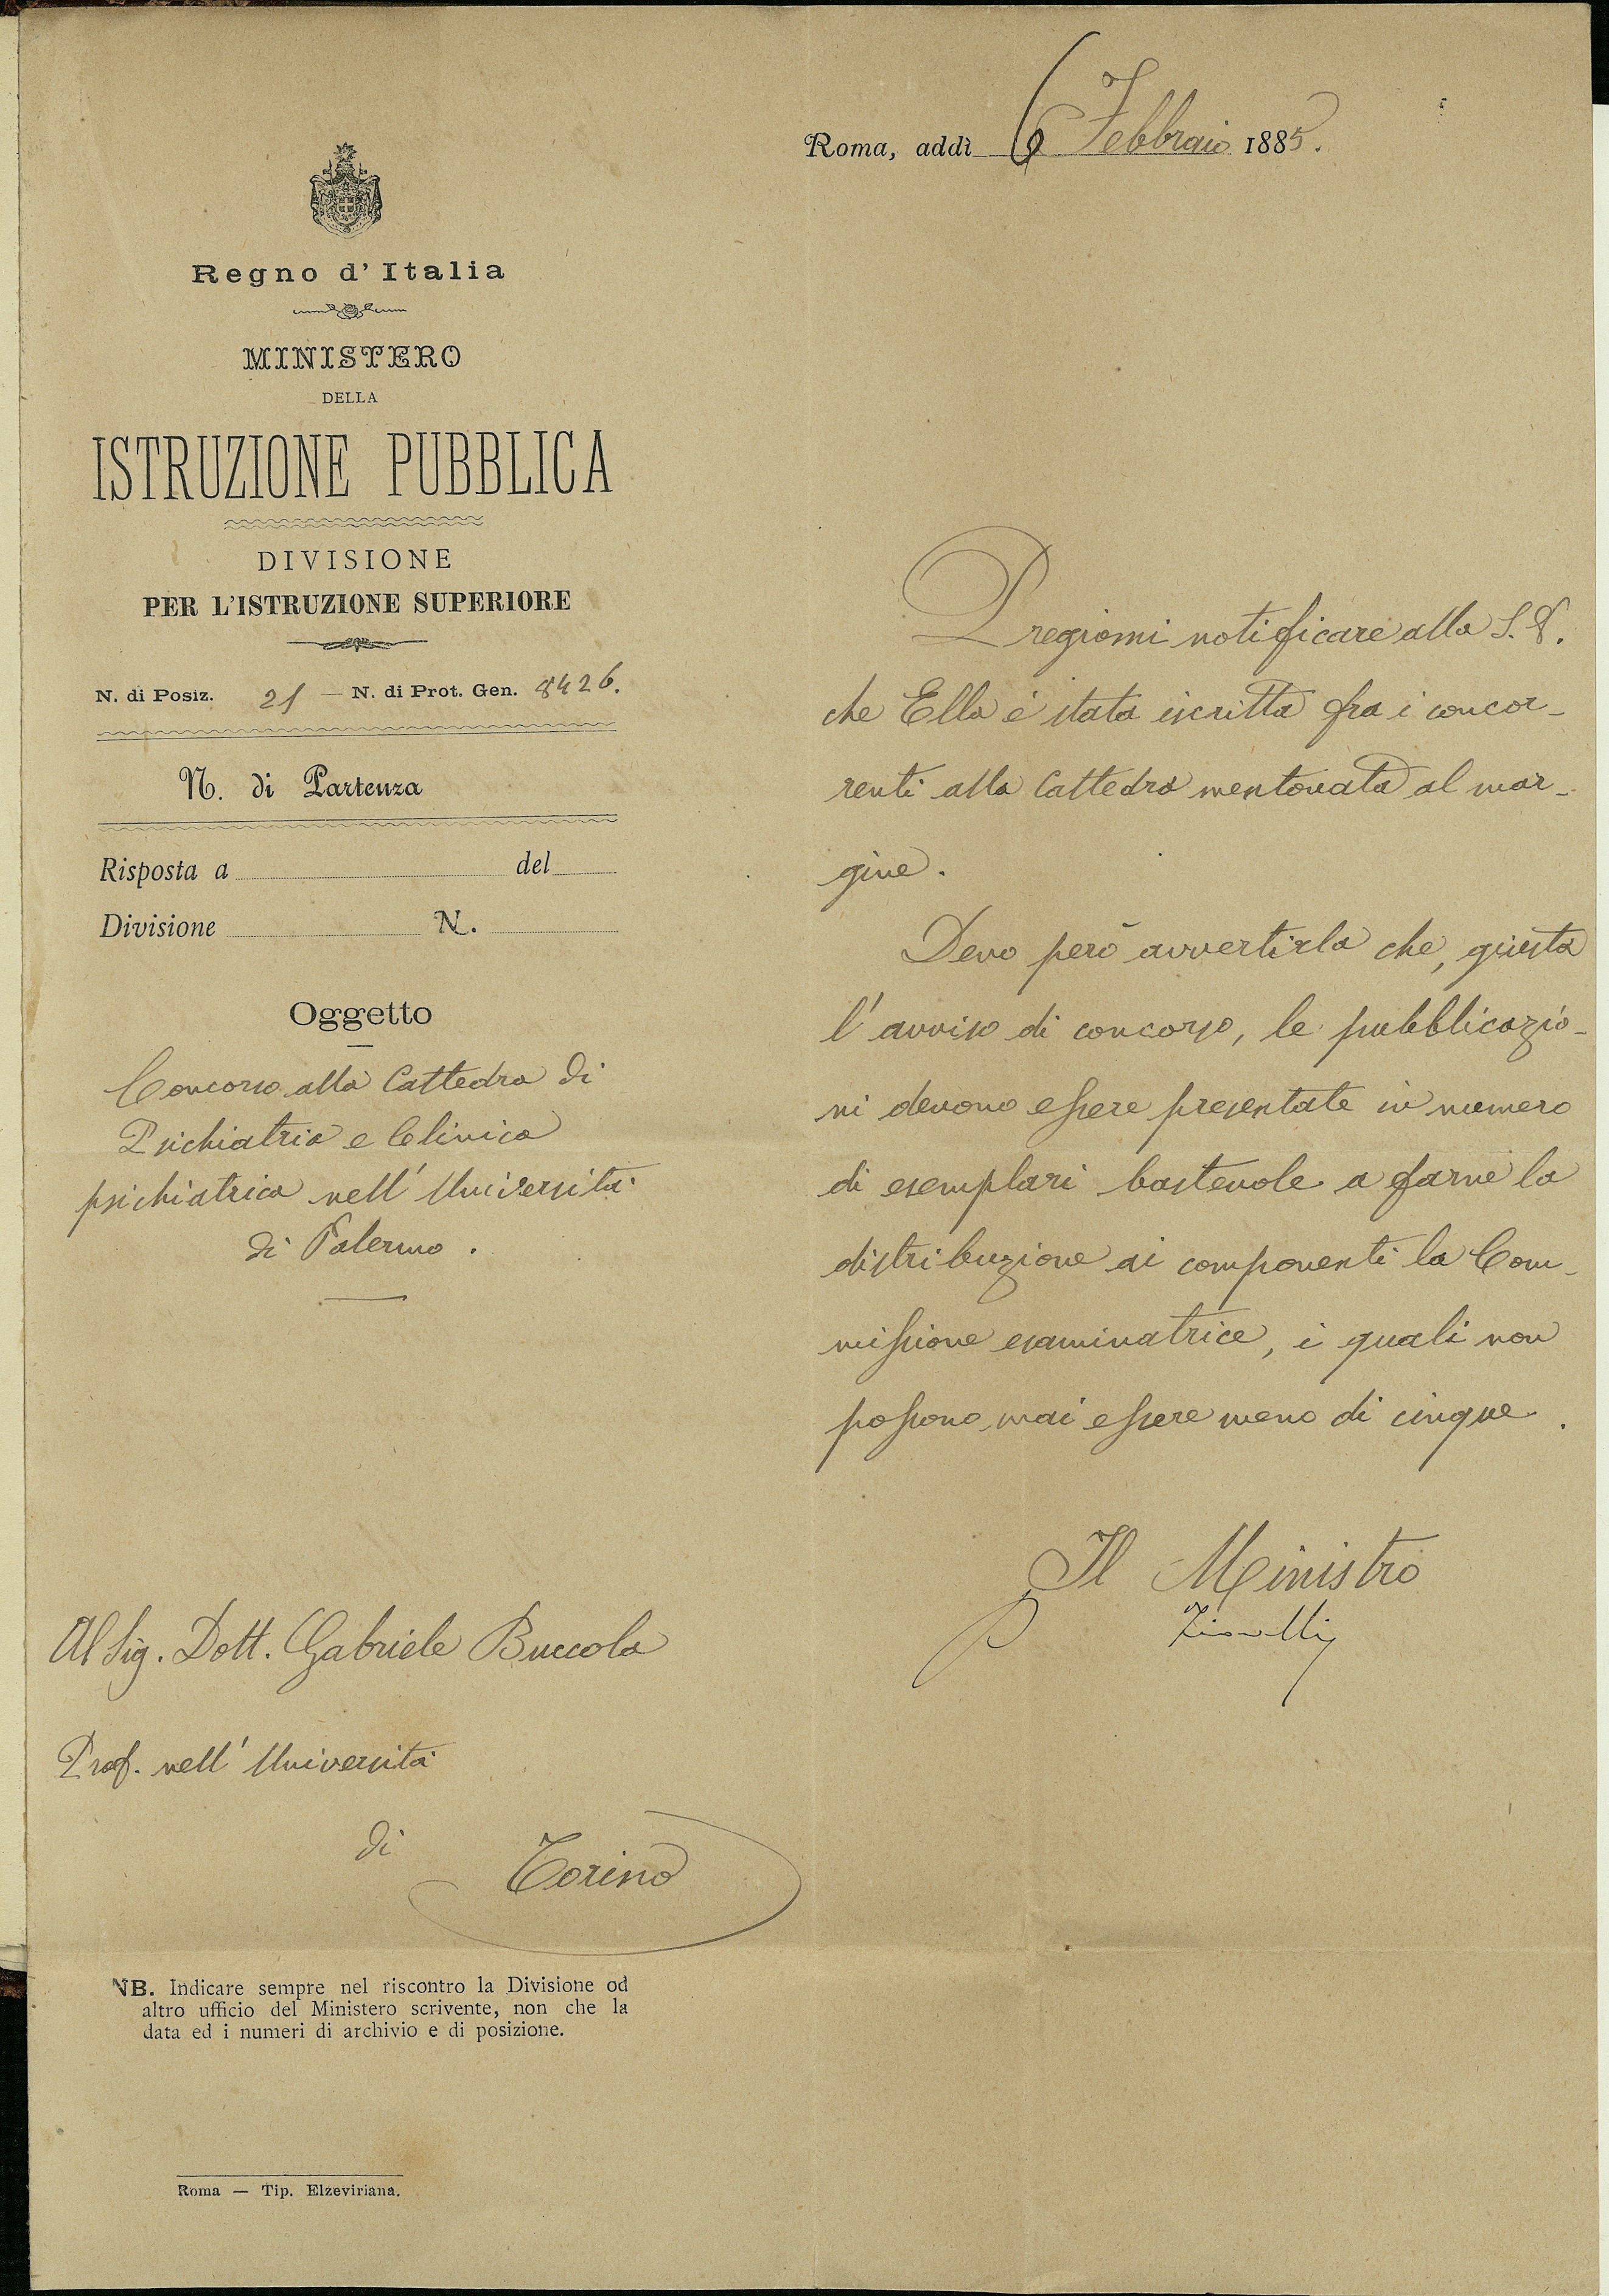 Roma, addì 6 Febbraio 1885.
Regno d'Italia
MINISTERO
DELLA
ISTRUZIONE PUBBLICA
DIVISIONE
PER L'ISTRUZIONE SUPERIORE
N. di Posiz. 21 — N. di Prot. Gen. 8426.
N. di Partenza
Risposta a del
Divisione N.
Oggetto
Concorso alla Cattedra di
Psichiatria e Clinica
psichiatrica nell'Università
di Palermo.
Al Sig. Dott. Gabriele Buccola
Prof. nell'Università
di Torino
NB. Indicare sempre nel riscontro la Divisione od
altro ufficio del Ministero scrivente, non che la
data ed i numeri di archivio e di posizione.
Roma — Tip. Elzeviriana.
Pregiomi notificare alla S. V.
che Ella è stata iscritta fra i concor-
renti alla Cattedra mentovata al mar-
gine.
Devo però avvertirla che, giusta
l'avviso di concorso, le pubblicazio-
ni devono essere presentate in numero
di esemplari bastevole a farne la
distribuzione ai componenti la Com-
missione esaminatrice, i quali non
possono mai essere meno di cinque.
Il Ministro